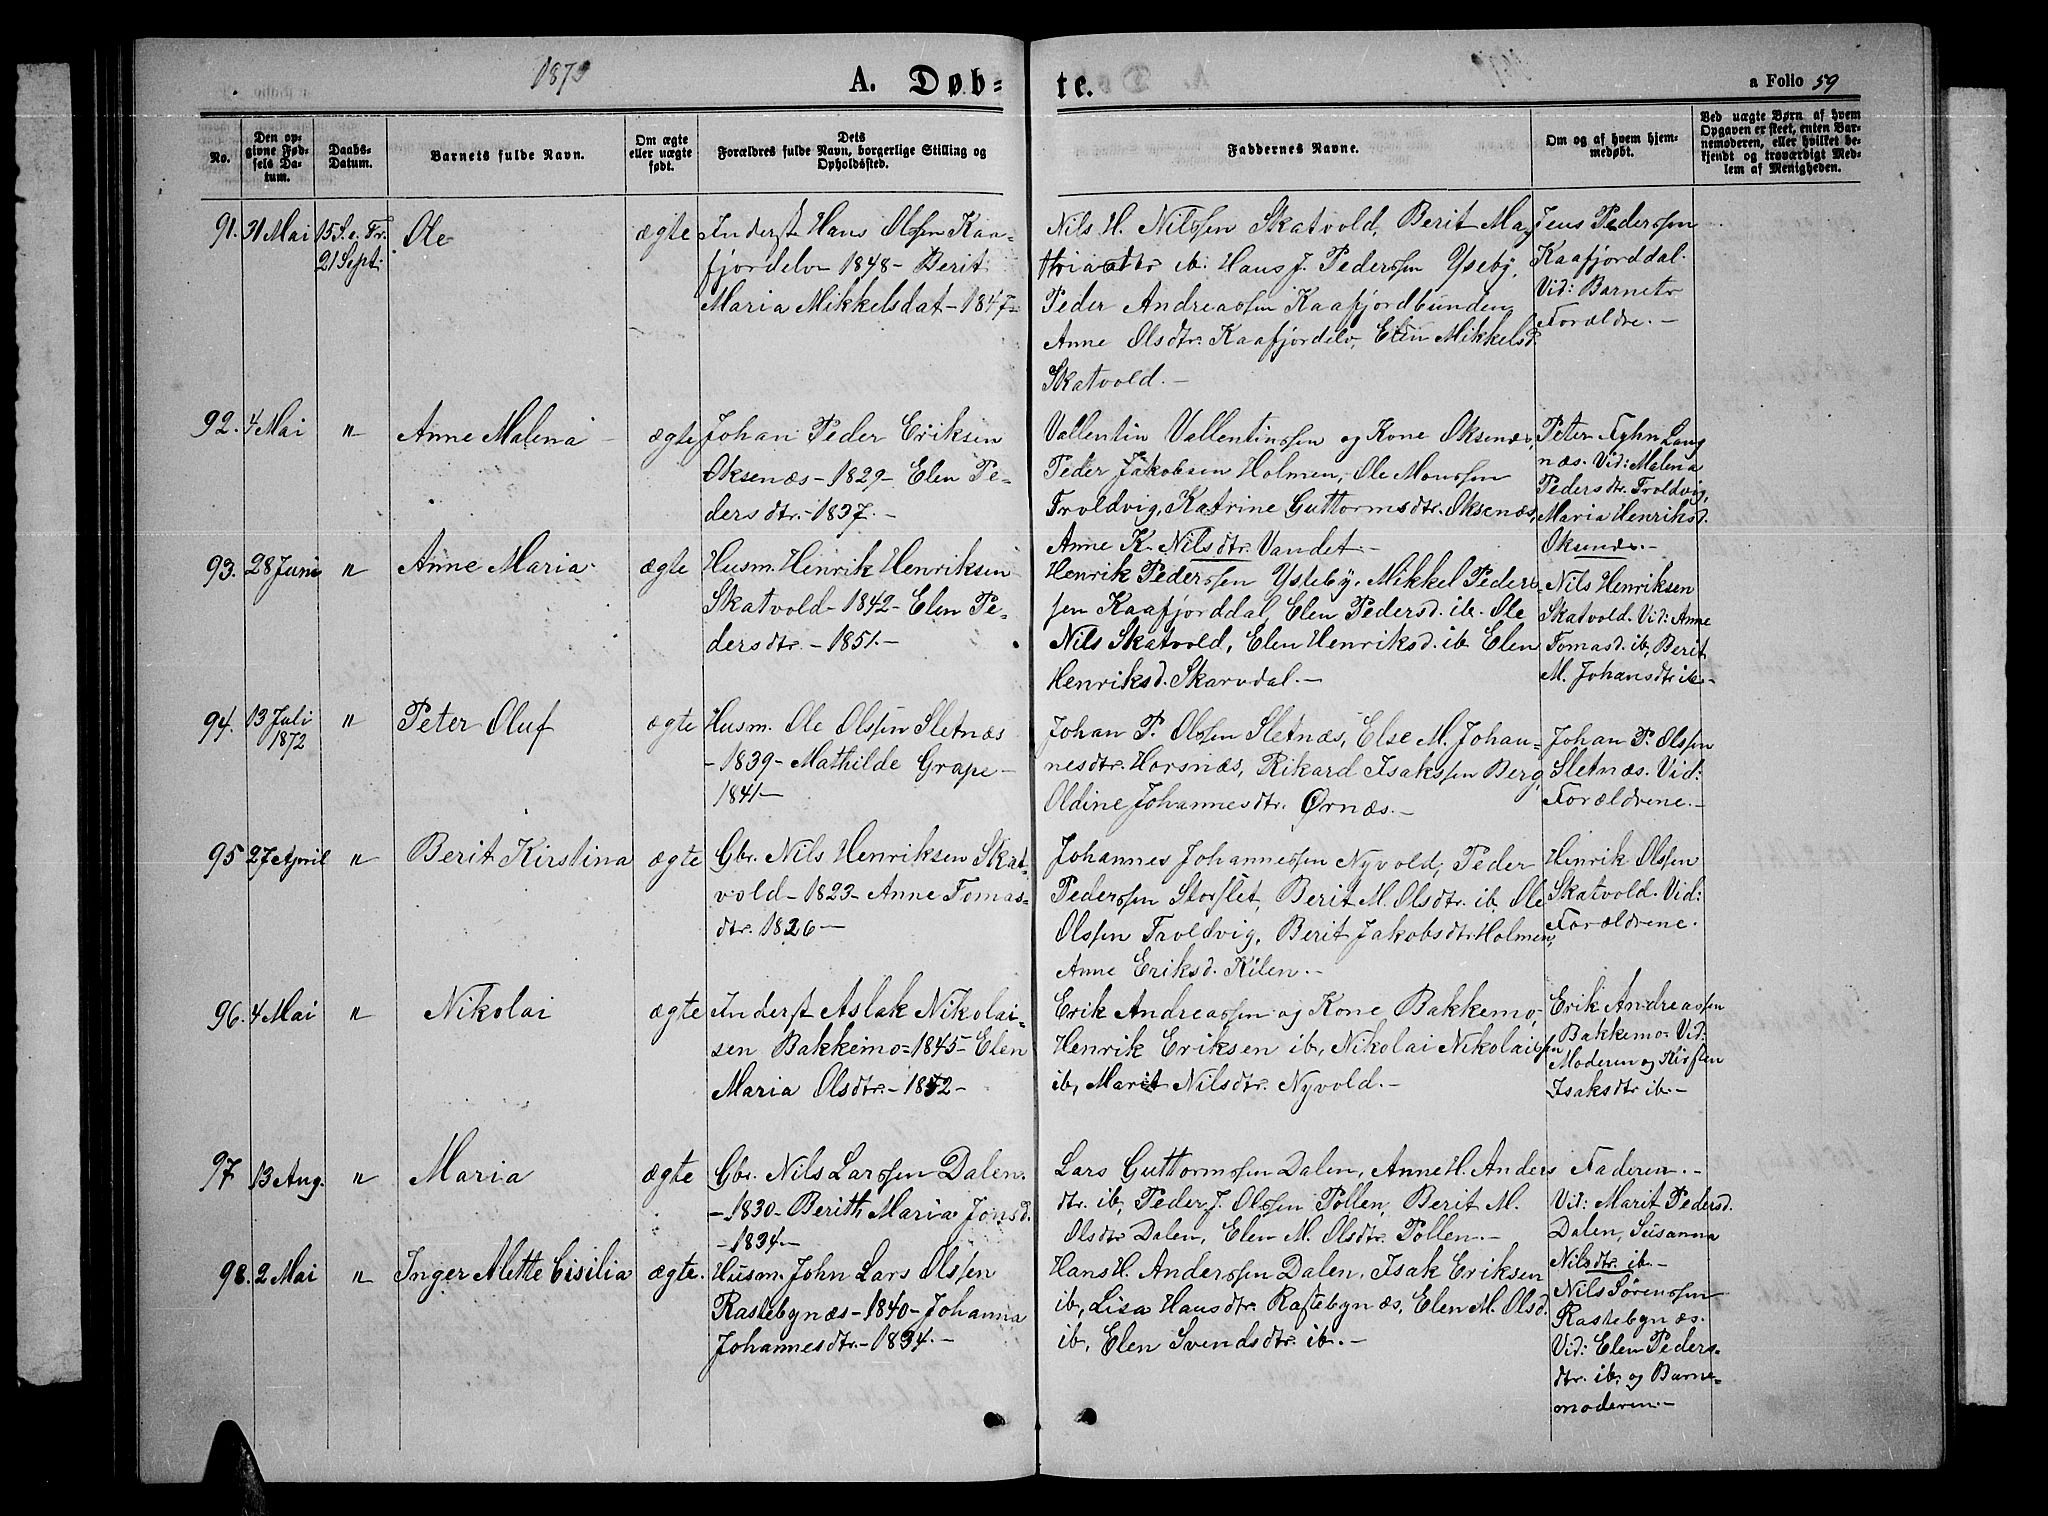 1873
A. Døb=
te.
a Folio 59
No.
Den op=
givne Fød=
sels Da=
tum.
Daabs=
Datum.
Barnets fulde Navn.
Om ægte
eller uægte
født.
Dets
Forældres fulde Navn, borgerlige Stilling og
Opholdssted.
Faddernes Navne.
Om og af hvem hjem=
medøbt.
Ved uægte Børn af hvem
Opgaven er skeet, enten Bar=
nemoderen, eller hvilket be=
kjendt og troværdigt Med=
lem af Menigheden.
91. 31 Mai
15 S. e. Tr.
21 Sept.
Ole
ægte
Inderst Hans Olssen Kaa=
fjordelv 1848 - Berit
Maria Mikkelsdat - 1847 -
Nils H. Nilssen Skatvold, Berit Ma=
thiasdtr ib. Hans J. Pederssen Yseby,
Peder Andreassen Kaafjordbunden
Anne Olsdtr. Kaafjordelv, Elen Mikkelsd.
Skatvold. -
Jens Pederssen
Kaafjorddal.
Vid: Barnets
Forældre. -
92. 4 Mai
"
Anne Malena
ægte
Johan Peder Eriksen
Oksenæs - 1829 - Elen Pe=
dersdtr. - 1837. -
Vallentin Vallentinssen og Kone Oksenæs,
Peder Jakobsen Holmen, Ole Monssen
Troldvig, Katrine Guttormsdtr. Oksenæs,
Anne K. Nilsdtr. Vandet. -
Peter Fyhn Lang
næs. Vid: Malena
Pedersdtr. Troldvig,
Maria Henriksd.
Oksenæs. -
93. 28 Juni
"
Anne Maria
ægte
Husm. Henrik Henriksen
Skatvold - 1842 - Elen Pe=
dersdtr. - 1851. -
Henrik Pederssen Ysteby, Mikkel Peders=
sen Kaafjorddal, Elen Pedersd. ib. Ole
Nils Skatvold, Elen Henriksd. ib. Elen
Henriksd. Skarvdal. -
Nils Henriksen
Skatvold. Vid: Anne
Tomasd. ib, Berit
M. Johansdtr ib. -
94. 13 Juli
1872
"
Peter Oluf
ægte
Husm. Ole Olssen Sletnæs
- 1839 - Mathilde Grape -
1841 -
Johan P. Olssen Sletnæs, Else M. Johan=
nesdtr. Horsnæs, Rikard Isakssen Berg,
Oldine Johannesdtr. Ørnæs. -
Johan P. Olssen
Sletnæs. Vid:
Forældrene. -
95 27 April
"
Berit Kirstina
ægte
Gbr. Nils Henriksen Skat=
vold - 1823 - Anne Tomas=
dtr. 1826 -
Johannes Johannessen Nyvold, Peder
Pederssen Storslet, Berit M. Olsdtr. ib. Ole
Olssen Troldvig, Berit Jakobsdtr Holmen,
Anne Eriksd. Kilen. -
Henrik Olssen
Skatvold. Vid:
Forældrene.
96. 4 Mai
"
Nikolai
ægte
Inderst Aslak Nikolai=
sen Bakkemo - 1845 - Elen
Maria Olsdtr. - 1852 -
Erik Andreassen og Kone Bakkemo,
Henrik Eriksen ib, Nikolai Nikolaissen
ib, Marit Nilsdtr. Nyvold. -
Erik Andreassen
Bakkemo. Vid:
Moderen og Kirsten
Isaksdtr ib. -
97. 13 Aug.
"
Maria
ægte
Gbr. Nils Larssen Dalen.
- 1830 - Berith Maria Jonsd.
- 1834 -
Lars Guttormssen Dalen, Anne H. Anders
dtr. ib, Peder J. Olssen Pollen, Berit M.
Olsdtr Dalen, Elen M. Olsdtr. Pollen. -
Faderen. -
Vid: Marit Pedersd.
Dalen, Susanna
Nilsdtr. ib. -
98. 2 Mai
"
Inger Mette Cisilia
ægte.
Husm. John Lars Olssen
Rastebynæs - 1840 - Johanna
Johannesdtr. - 1834. -
Hans H. Anderssen Dalen, Isak Eriksen
ib, Lisa Hansdtr. Rastebynæs, Elen M. Olsd.
ib, Elen Svendsdtr. ib. -
Nils Sørenssen
Rastebynæs.
Vid: Elen Peders=
dtr. ib. og Barne=
moderen. -